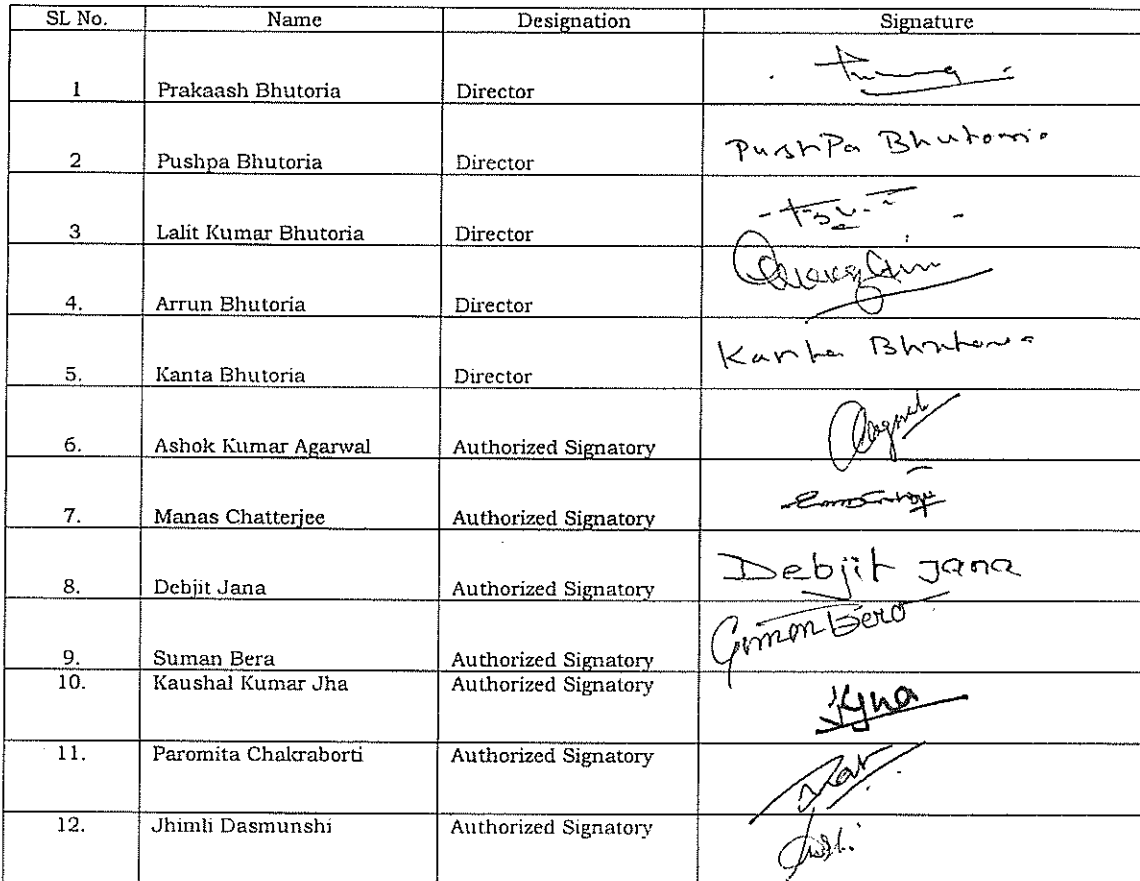 SL No. Name Designation Signature
1 Prakaash Bhutoria Director
2 Pushpa Bhutoria Director PushPa Bhutoria
3 Lalit Kumar Bhutoria Director
4. Arrun Bhutoria Director
5. Kanta Bhutoria Director Kanta Bhutoria
6. Ashok Kumar Agarwal Authorized Signatory
7. Manas Chatterjee Authorized Signatory
8. Debjit Jana Authorized Signatory Debjit Jana
9. Suman Bera Authorized Signatory Suman Bera
10. Kaushal Kumar Jha Authorized Signatory KJha
11. Paromita Chakraborti Authorized Signatory
12. Jhimli Dasmunshi Authorized Signatory